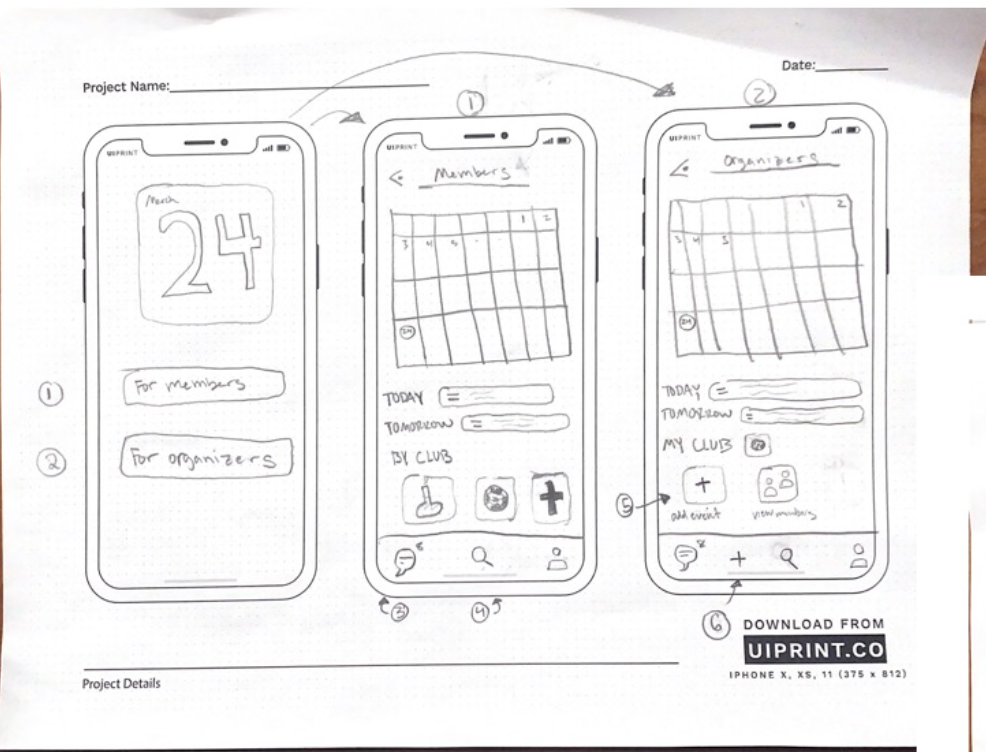 Project Name:
Date:
1
2
UIPRINT
March
24
1
For members
2
For organizers
UIPRINT
Members
1 2
3 4 5
24
TODAY
TOMORROW
BY CLUB
8
3
4
UIPRINT
Organizers
1 2
3 4 5
24
TODAY
TOMORROW
MY CLUB
5
add event
view members
6
DOWNLOAD FROM
UIPRINT.CO
IPHONE X, XS, 11 (375 x 812)
Project Details